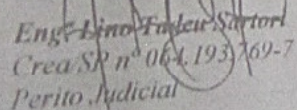 Engº Lino Tadeu Sartori
Crea/SP nº 064.193.769-7
Perito Judicial